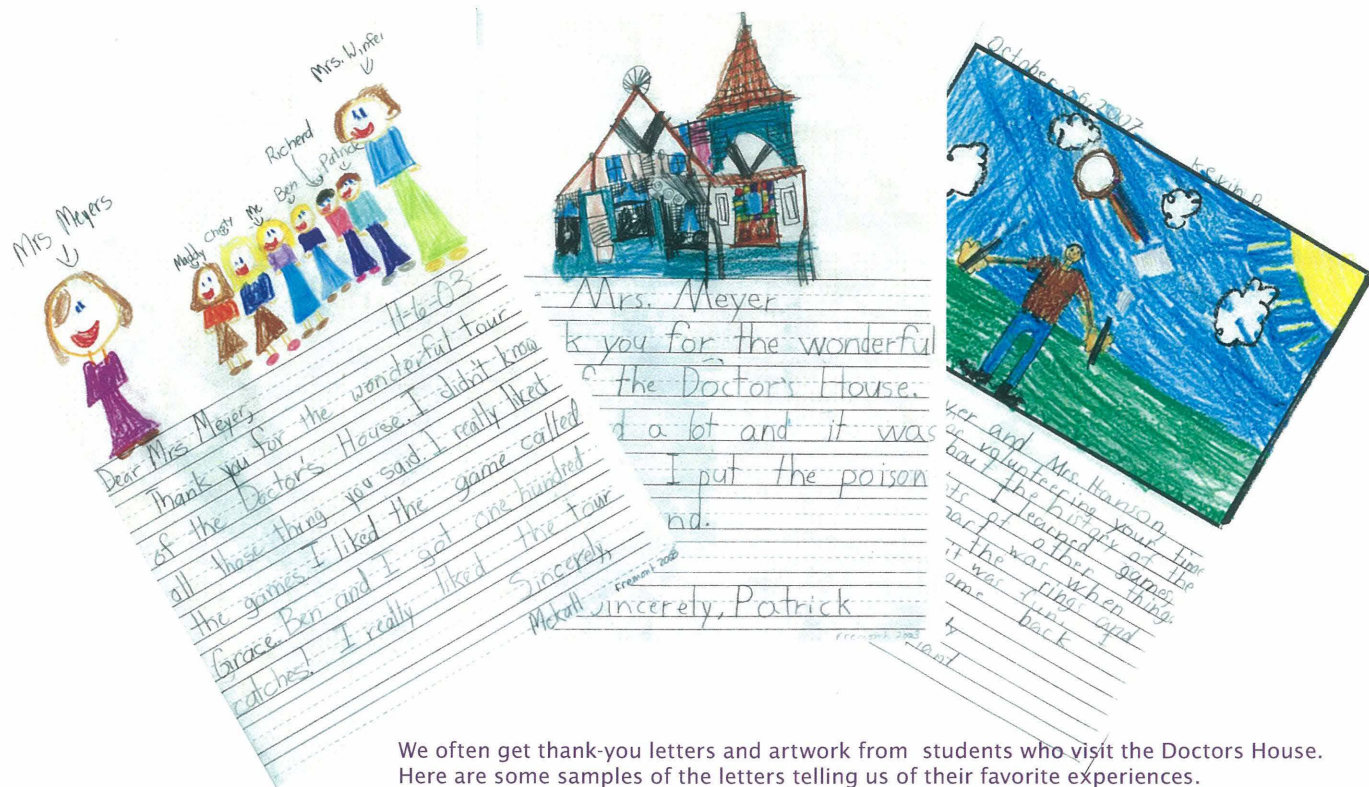 Mrs Meyers
Maddy
Me
Ben
Richerd
Patrick
Mrs. Winter
11-6-03
Dear Mrs. Meyer,
Thank you for the wonderful tour
of the Doctor's House. I didn't know
all those thing you said. I really liked
the games. I liked the game called
Grace. Ben and I got one hundred
catches! I really liked the tour
Sincerely,
Mckall
Fremont 2003
Mrs. Meyer
k you for the wonderful
f the Doctor's House.
d a lot and it was
I put the poison
nd.
Sincerely, Patrick
Fremont 2003
October 26, 2007
Kevin D.
yer and Mrs. Hanson,
or volunteering your time
bout the history of the
I learned games,
of other things
part was when
the rings and
it was fun
ame back
We often get thank-you letters and artwork from students who visit the Doctors House.
Here are some samples of the letters telling us of their favorite experiences.